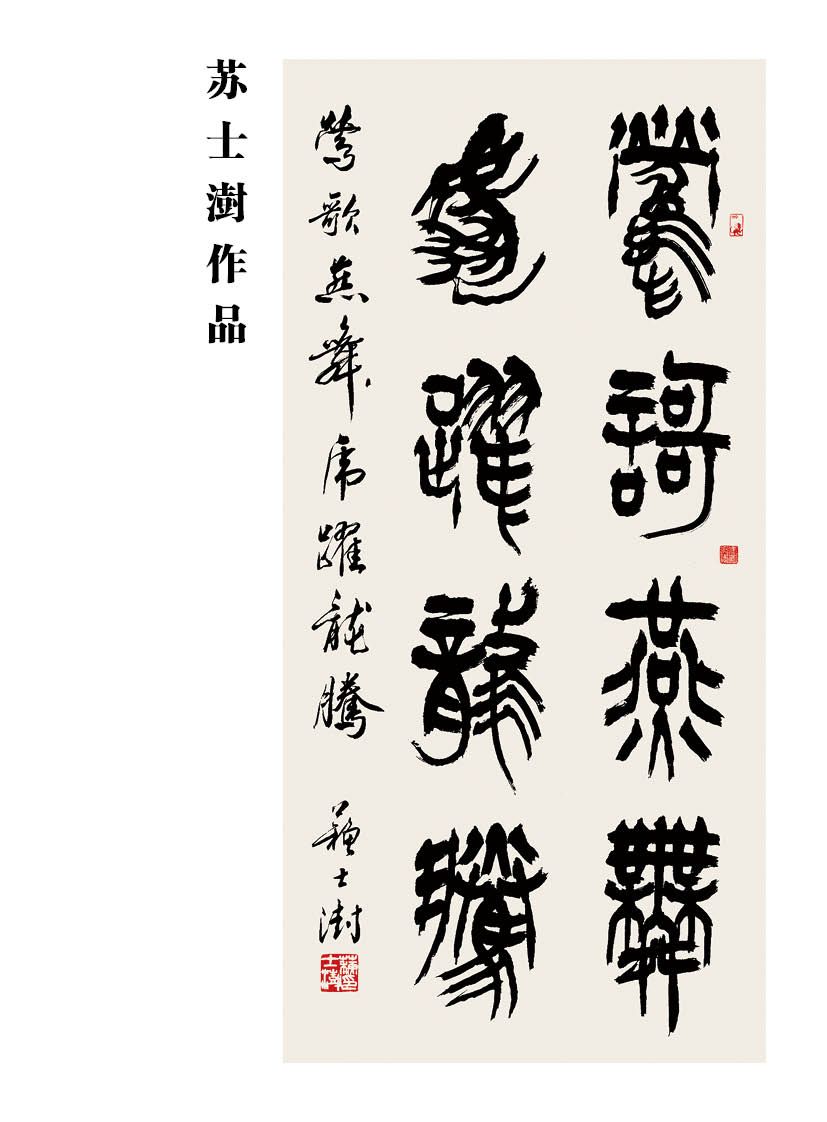 鶯謌燕舞
虎躍龍騰
鶯歌燕舞虎躍龍騰
蘇士澍
苏士澍作品